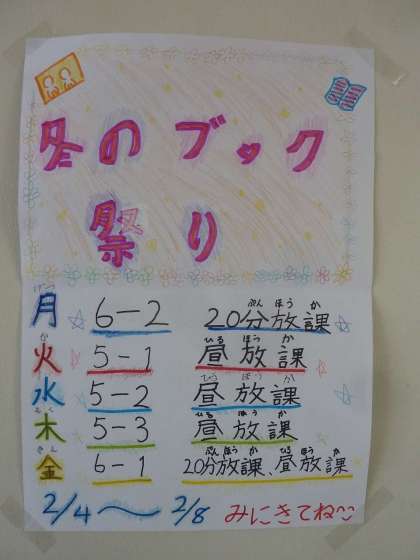 冬のブック
祭り
月 6-2 20分放課
火 5-1 昼放課
水 5-2 昼放課
木 5-3 昼放課
金 6-1 20分放課、昼放課
2/4〜2/8 みにきてね